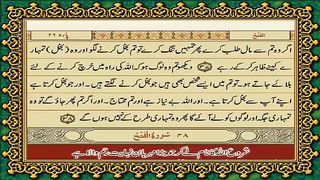 الفتح ٤٨ پارہ ٢٦
اگر وہ تم سے مال طلب کرے پھر تمہیں تنگ کرے تو تم بخل کرنے لگو اور وہ (بخل) تمہارے
کینے ظاہر کر کے رہے دیکھو تم وہ لوگ ہو کہ اللہ کی راہ میں خرچ کرنے کے لئے
بلائے جاتے ہو۔ تو تم میں ایسے شخص بھی ہیں جو بخل کرنے لگتے ہیں۔ اور جو بخل کرتا ہے
اپنے آپ سے بخل کرتا ہے۔ اور اللہ بے نیاز ہے اور تم محتاج۔ اور اگر تم پھر جاؤ گے تو وہ
تمہاری جگہ اور لوگوں کو لے آئے گا اور وہ تمہاری طرح کے نہیں ہوں گے
٤٨ سورۃ الفتح
شروع اللہ کا نام لے کر جو بڑا مہربان نہایت رحم والا ہے